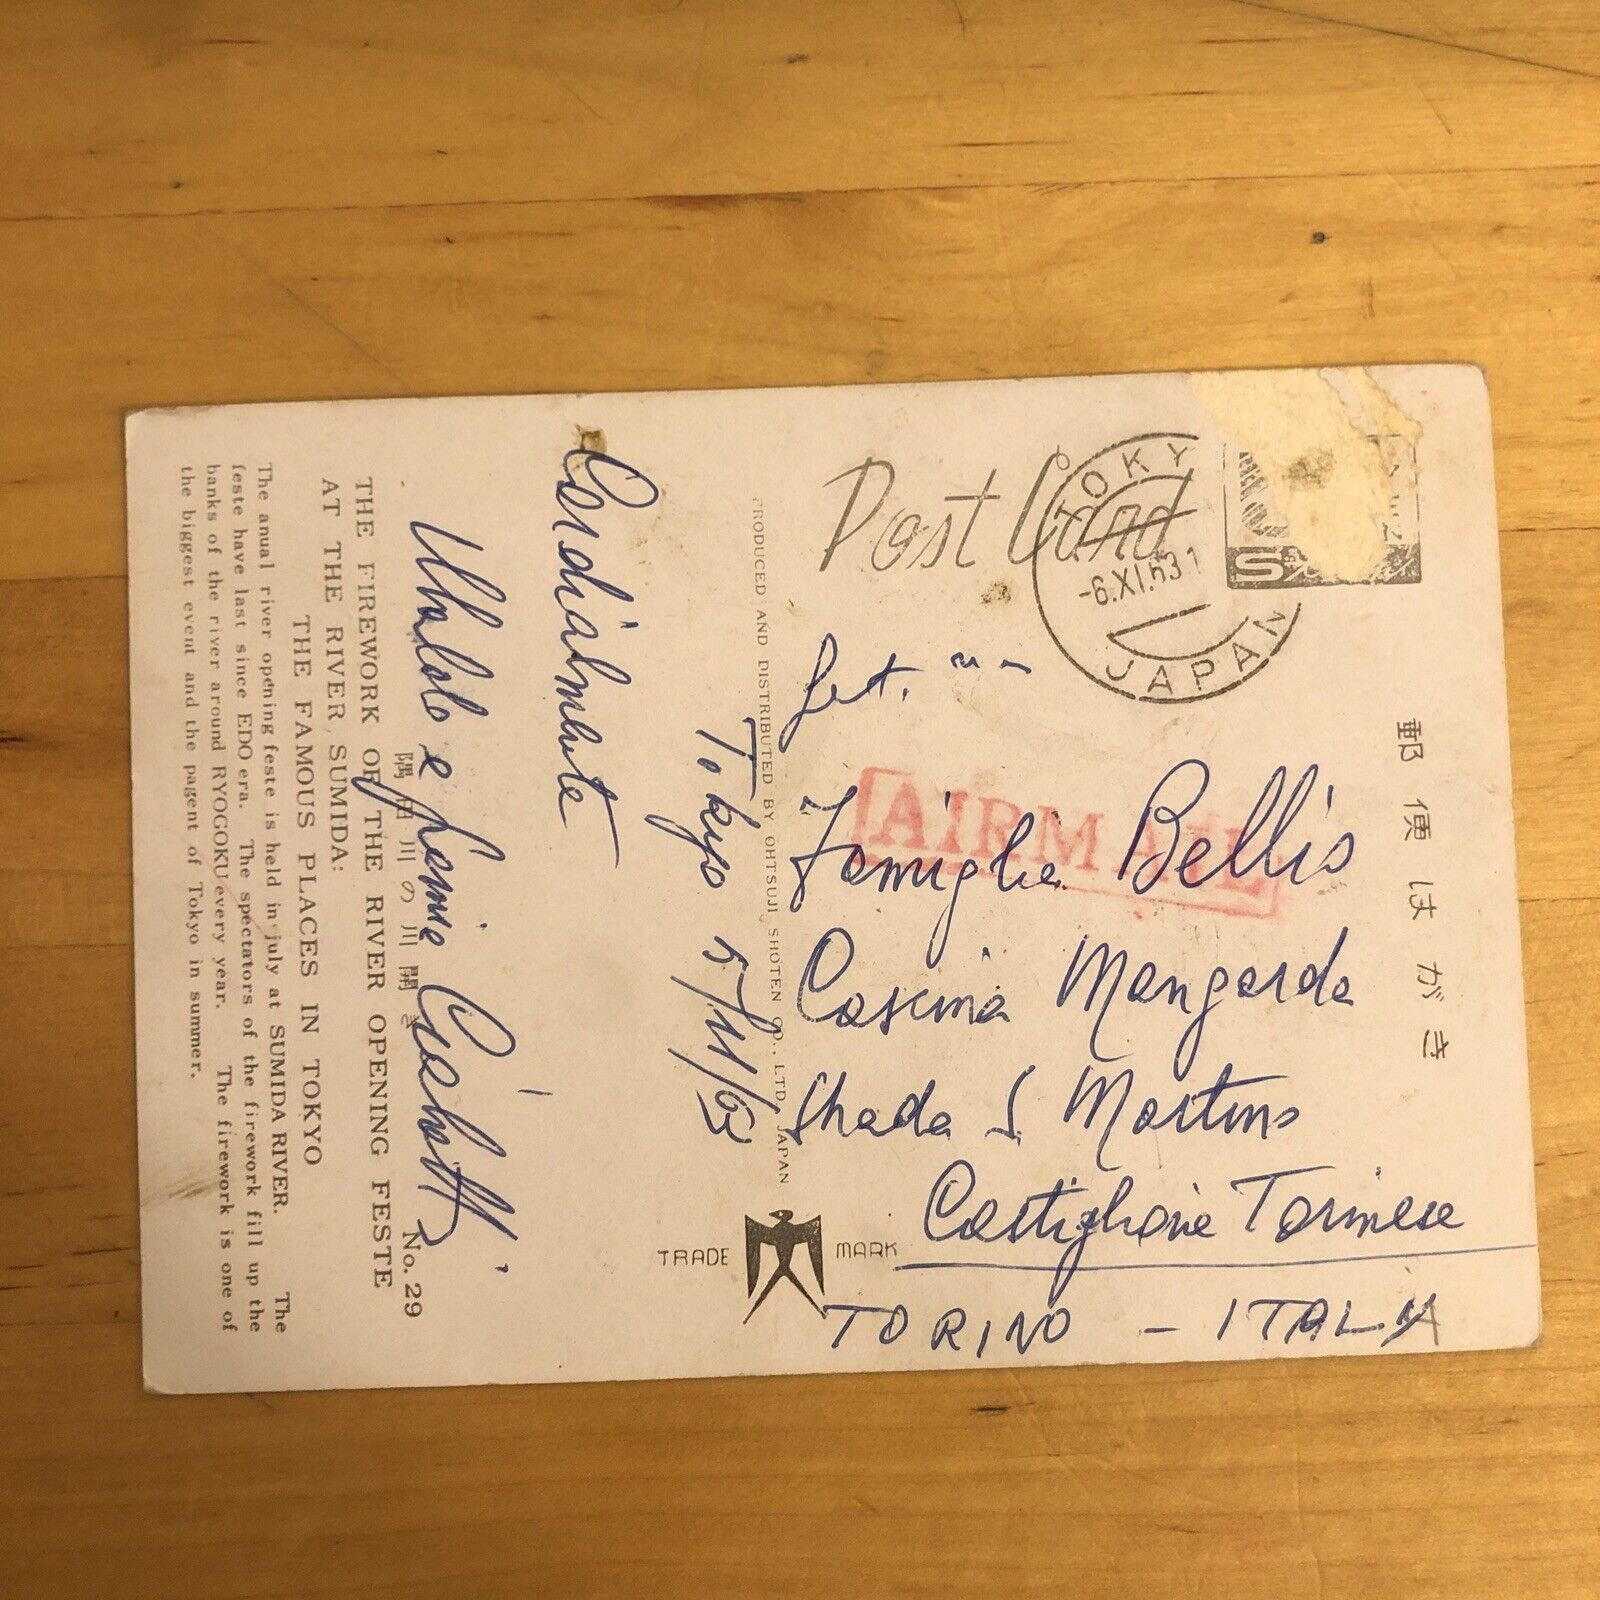 Post Card
郵便はがき
TOKYO
-6.XI.63
JAPAN
AIRMAIL
Tokyo 5/11/63
Cordialmente
e
Famiglia Bellis
Cascina Mangarda
Strada S Martino
Castiglione Torinese
TORINO - ITALY
PRODUCED AND DISTRIBUTED BY OHTSUJI SHOTEN CO., LTD. JAPAN
TRADE MARK
隅田川の川開き No. 29
THE FIREWORK OF THE RIVER OPENING FESTE
AT THE RIVER, SUMIDA:
THE FAMOUS PLACES IN TOKYO
The anual river opening feste is held in july at SUMIDA RIVER. The
feste have last since EDO era. The spectators of the firework fill up the
banks of the river around RYOGOKU every year. The firework is one of
the biggest event and the pagent of Tokyo in summer.